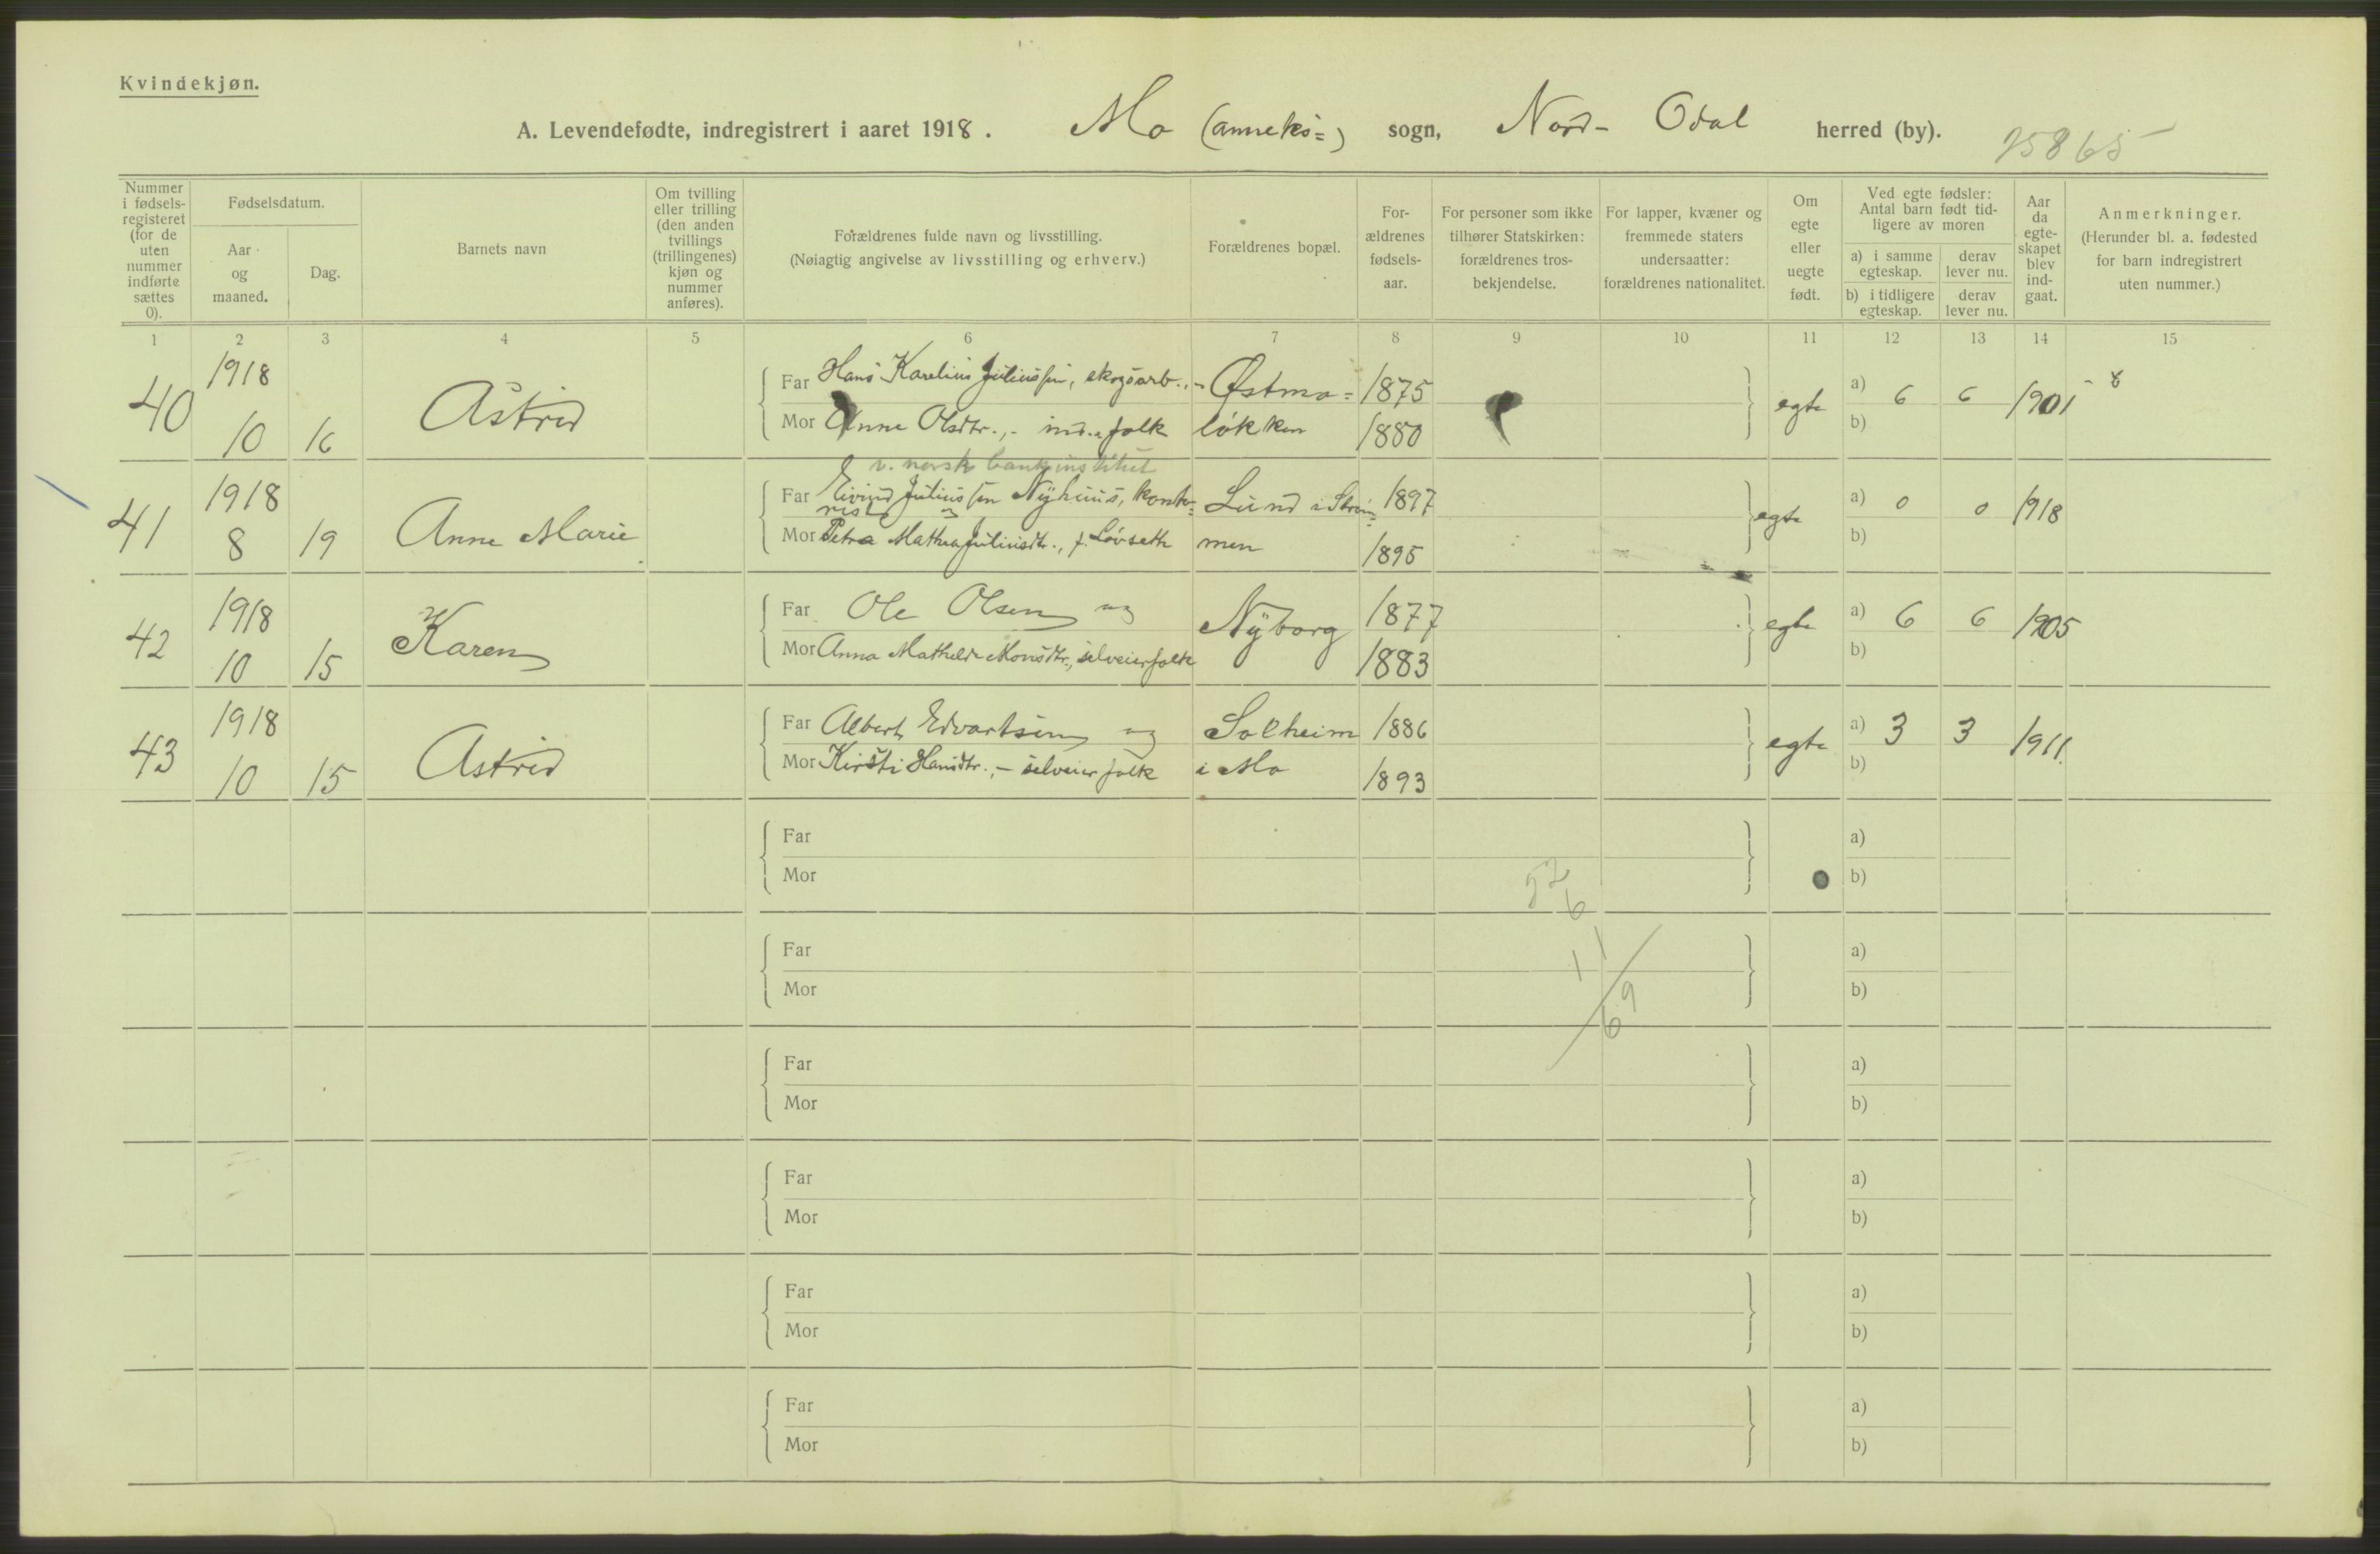 Kvindekjøn.
A. Levendefødte, indregistrert i aaret 1918. Mo (anneks=) sogn, Nord-Odal herred (by).
25865
Nummer i fødsels-registeret (for de uten nummer indførte sættes 0).
Fødselsdatum.
Aar og maaned.
Dag.
Barnets navn
Om tvilling eller trilling (den anden tvillings (trillingenes) kjøn og nummer anføres).
Forældrenes fulde navn og livsstilling.
(Nøiagtig angivelse av livsstilling og erhverv.)
Forældrenes bopæl.
For-ældrenes fødsels-aar.
For personer som ikke tilhører Statskirken: forældrenes tros-bekjendelse.
For lapper, kvæner og fremmede staters undersaatter: forældrenes nationalitet.
Om egte eller uegte født.
Ved egte fødsler: Antal barn født tid-ligere av moren
a) i samme egteskap.
derav lever nu.
b) i tidligere egteskap.
derav lever nu.
Aar da egte-skapet blev ind-gaat.
Anmerkninger.
(Herunder bl. a. fødested for barn indregistrert uten nummer.)
1 2 3 4 5 6 7 8 9 10 11 12 13 14 15
40 1918 10 16 Astrid
Far Hans Karelius Juliussen, skogsarb., - Østmo= 1875
Mor Anne Olsdtr., - ind. folk løkken 1880
egte a) 6 6 1901 8
b)
v. norsk bankinstitut
41 1918 8 19 Anne Marie
Far Eivind Juliussen Nyhuus, konto= Lund i Strøm= 1897
rist og
Mor Petra Mathea Juliusdtr., f. Løvseth men 1895
egte a) 0 0 1918
b)
42 1918 10 15 Karen
Far Ole Olsen og Nyborg 1877
Mor Anna Mathilde Monsdtr., selveierfolk 1883
egte a) 6 6 1905
b)
43 1918 10 15 Astrid
Far Albert Edvartsen og Solheim 1886
Mor Kirsti Hansdtr., - selveierfolk i Mo 1893
egte a) 3 3 1911.
b)
Far a)
Mor b)
52
6
Far a)
11
Mor b)
69
Far a)
Mor b)
Far a)
Mor b)
Far a)
Mor b)
Far a)
Mor b)